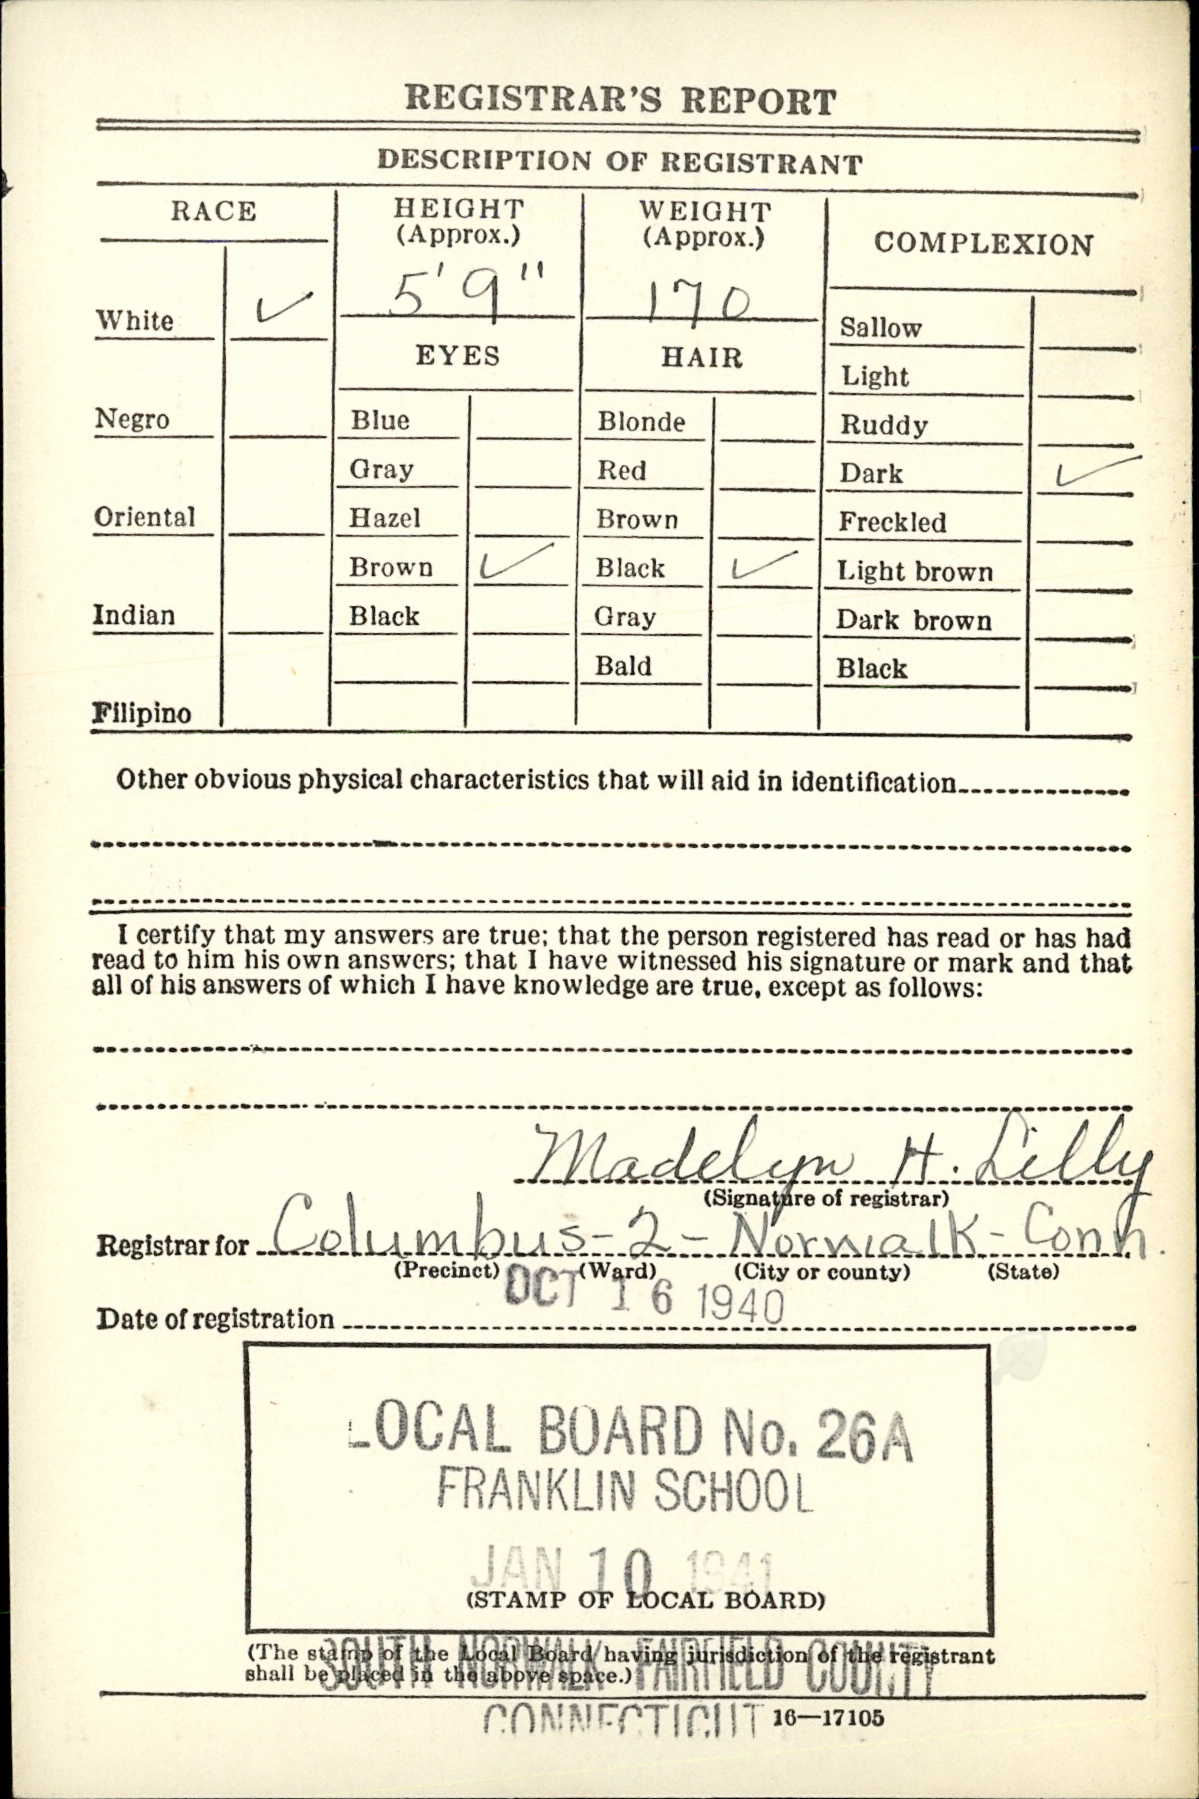 REGISTRAR'S REPORT
DESCRIPTION OF REGISTRANT
RACE
HEIGHT
(Approx.)
WEIGHT
(Approx.)
COMPLEXION
5' 9"
170
White ✓
EYES
HAIR
Sallow
Light
Negro
Blue
Blonde
Ruddy
Gray
Red
Dark ✓
Oriental
Hazel
Brown
Freckled
Brown ✓
Black ✓
Light brown
Indian
Black
Gray
Dark brown
Bald
Black
Filipino
Other obvious physical characteristics that will aid in identification
I certify that my answers are true; that the person registered has read or has had
read to him his own answers; that I have witnessed his signature or mark and that
all of his answers of which I have knowledge are true, except as follows:
Madelyn H. Lilly
(Signature of registrar)
Registrar for Columbus-2-Norwalk-Conn.
(Precinct) (Ward) (City or county) (State)
OCT 16 1940
Date of registration
LOCAL BOARD No. 26A
FRANKLIN SCHOOL
JAN 10 1941
(STAMP OF LOCAL BOARD)
SOUTH NORWALK FAIRFIELD COUNTY
(The stamp of the Local Board having jurisdiction of the registrant
shall be placed in the above space.)
CONNECTICUT
16—17105